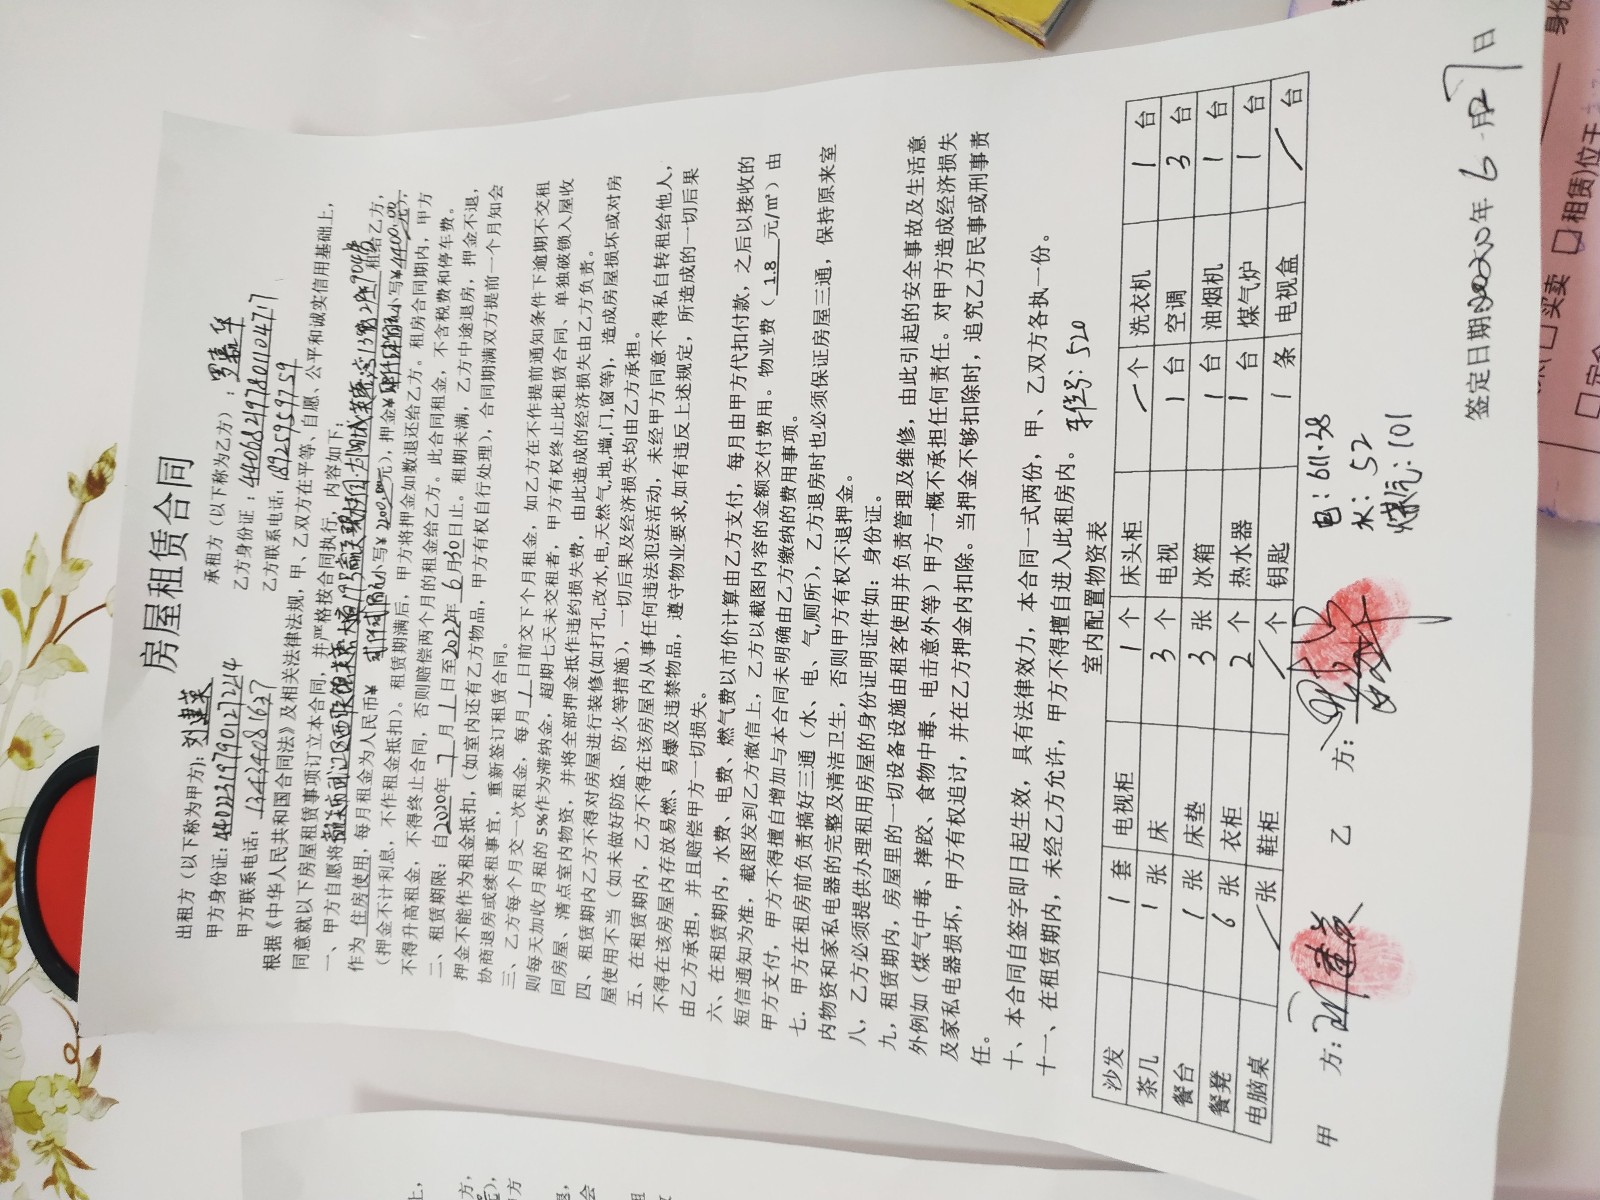 房屋租赁合同
出租方（以下称为甲方）：刘建英 承租方（以下称为乙方）：
甲方身份证： 乙方身份证：440682197801104717
甲方联系电话：13434081637 乙方联系电话：18925959759
根据《中华人民共和国合同法》及相关法律法规，甲、乙双方在平等、自愿、公平和诚实信用基础上，
同意就以下房屋租赁事项订立本合同，并严格按合同执行，内容如下：
一、甲方自愿将 租给乙方，
作为 住房使用，每月租金为人民币￥ 小写￥2200.00元），押金￥ 小写￥4400.00元，
（押金不计利息，不作租金抵扣）。租赁期满后，甲方将押金如数退还给乙方。租房合同期内，甲方
不得升高租金，不得终止合同，否则赔偿两个月的租金给乙方。此合同租金，不含税费和停车费。
二、租赁期限：自2020年 7 月 1 日至2022年 6 月30日止。租期未满，乙方中途退房，押金不退，
押金不能作为租金抵扣，（如室内还有乙方物品，甲方有权自行处理），合同期满双方提前一个月知会
协商退房或续租事宜，重新签订租赁合同。
三、乙方每个月交一次租金，每月 1 日前交下个月租金，如乙方在不作提前通知条件下逾期不交租
则每天加收月租的 5%作为滞纳金，超期七天未交租者，甲方有权终止此租赁合同、单独破锁入屋收
回房屋、清点室内物资，并将全部押金抵作违约损失费，由此造成的经济损失由乙方负责。
四、租赁期内乙方不得对房屋进行装修(如打孔,改水,电,天然气,地,墙,门,窗等)，造成房屋损坏或对房
屋使用不当（如未做好防盗、防火等措施），一切后果及经济损失均由乙方承担。
五、在租赁期内，乙方不得在该房屋内从事任何违法犯法活动，未经甲方同意不得私自转租给他人，
不得在该房屋内存放易燃、易爆及违禁物品，遵守物业要求,如有违反上述规定，所造成的一切后果
由乙方承担，并且赔偿甲方一切损失。
六、在租赁期内，水费、电费、燃气费以市价计算由乙方支付，每月由甲方代扣付款，之后以接收的
短信通知为准，截图发到乙方微信上，乙方以截图内容的金额交付费用。物业费（ 1.8 元/㎡）由
甲方支付，甲方不得擅自增加与本合同未明确由乙方缴纳的费用事项。
七．甲方在租房前负责搞好三通（水、电、气,厕所），乙方退房时也必须保证房屋三通，保持原来室
内物资和家私电器的完整及清洁卫生，否则甲方有权不退押金。
八，乙方必须提供办理租用房屋的身份证明证件如：身份证。
九，租赁期内，房屋里的一切设备设施由租客使用并负责管理及维修，由此引起的安全事故及生活意
外例如（煤气中毒、摔跤、食物中毒、电击意外等）甲方一概不承担任何责任。对甲方造成经济损失
及家私电器损坏，甲方有权追讨，并在乙方押金内扣除。当押金不够扣除时，追究乙方民事或刑事责
任。
十、本合同自签字即日起生效，具有法律效力，本合同一式两份，甲、乙双方各执一份。
十一、在租赁期内，未经乙方允许，甲方不得擅自进入此租房内。 车位号：520
室内配置物资表
沙发 1 套 电视柜 1 个 床头柜 / 个 洗衣机 1 台
茶几 1 张 床 3 个 电视 1 台 空调 3 台
餐台 1 张 床垫 3 张 冰箱 1 台 油烟机 1 台
餐凳 6 张 衣柜 2 个 热水器 1 台 煤气炉 1 台
电脑桌 / 张 鞋柜 / 个 钥匙 1 条 电视盒 / 台
电：611.38
水：52
煤气：101
甲 方：刘建英 乙 方：
签定日期 年 6 月27日
身份
买卖 租赁)位于